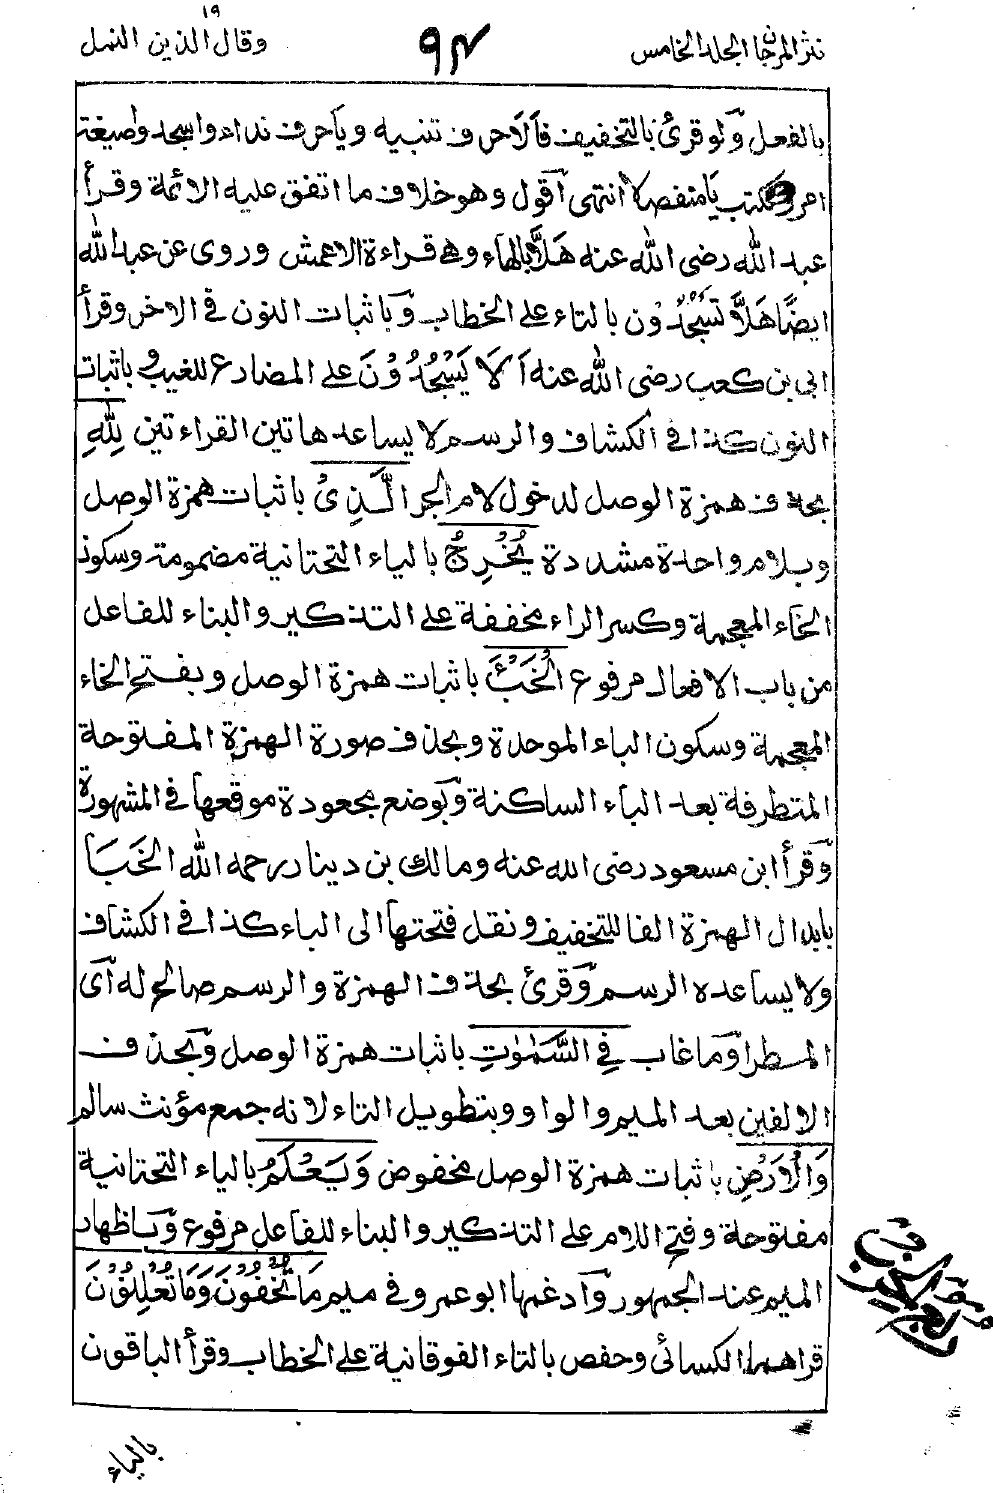 نثر المرجان الجلد الخامس ٩٤ وقال الذين ١٩ النمل
بالفعل وَلو قرئ بالتخفيف فاَلاحرف تنبيه ويا حرف نداء واسجدوا صيغة
امر وكتب يا منفصلا انتهى اَقول وهو خلاف ما اتفق عليه الائمة وقرأ
عبد الله رضى الله عنه هَلَّا بالهاء وهى قراءة الاعمش وروى عن عبد الله
ايضًا هَلَّا تَسْجُدُوْن بالتاء على الخطاب وَباثبات النون فى الاخر وقرأ
ابى بن كعب رضى الله عنه اَلَا يَسْجُدُوْنَ على المضارع للغيب وباثبات
النون كذا فى الكشاف والرسم لا يساعد هاتين القراءتين لِلّٰهِ
بحذف همزة الوصل لدخول لام الجر الَّذِىْ باثبات همزة الوصل
وبلام واحدة مشددة يُخْرِجُ بالياء التحتانية مضمومة وسكون
الخاء المعجمة وكسر الراء مخففة على التذكير والبناء للفاعل
من باب الافعال مرفوع الْخَبْءَ باثبات همزة الوصل وبفتح الخاء
المعجمة وسكون الباء الموحدة وبحذف صورة الهمزة المفتوحة
المتطرفة بعد الباء الساكنة وَبوضع مجعودة موقعها فى المشهورة
وَقرأ ابن مسعود رضى الله عنه ومالك بن دينار رحمه الله الخَبَا
بابدال الهمزة الفا للتخفيف ونقل فتحتها الى الباء كذا فى الكشاف
ولا يساعده الرسم وَقرئ بحذف الهمزة والرسم صالح له اَى
المطر وَما غاب فِى السَّمٰوٰتِ باثبات همزة الوصل وَبحذف
الالفين بعد الميم والواو وبتطويل التاء لانه جمع مؤنث سالم
وَالْاَرْضِ باثبات همزة الوصل مخفوض وَيَعْلَمُ بالياء التحتانية
مفتوحة وفتح اللام على التذكير والبناء للفاعل مرفوع وَباظهار
الميم عند الجمهور وَادغمها ابو عمرو فى ميم مَا تُخْفُوْنَ وَمَا تُعْلِنُوْنَ
قراهما الكسائى وحفص بالتاء الفوقانية على الخطاب وقرأ الباقون
بالياء